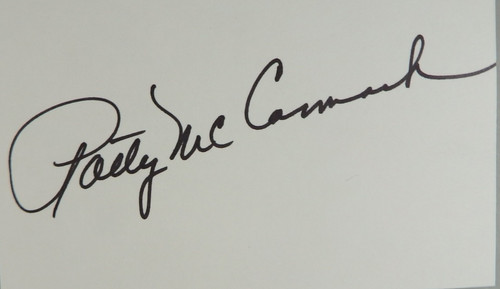 Patty McCormack